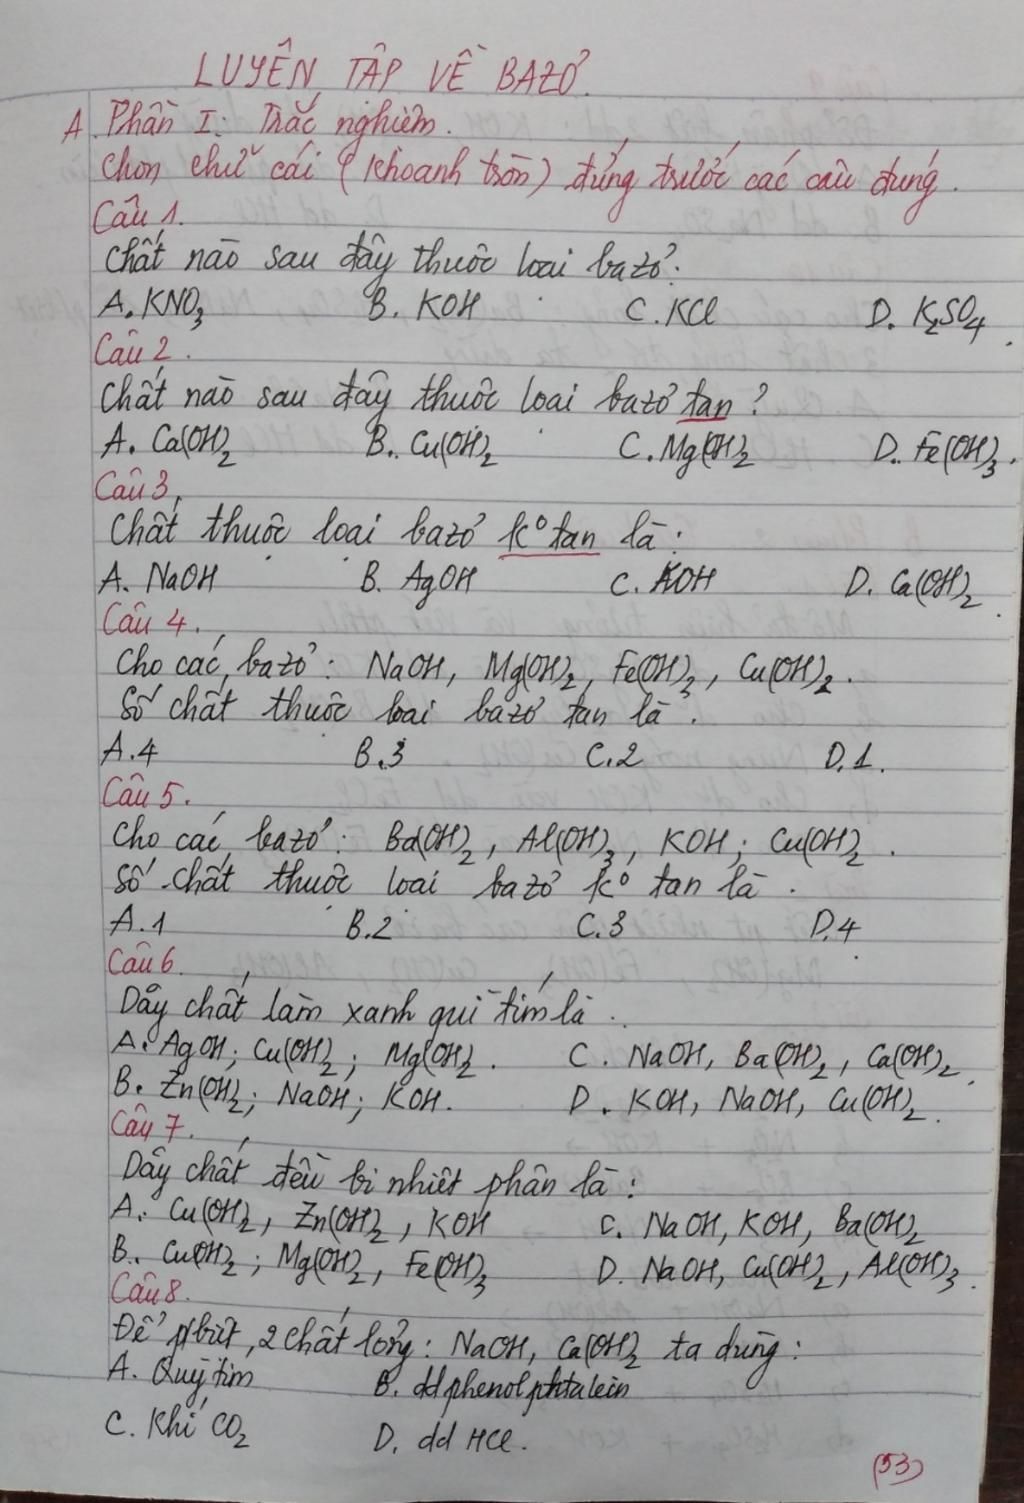 LUYỆN TẬP VỀ BAZƠ.
A. Phần I: Trắc nghiệm.
Chọn chữ cái (khoanh tròn) đứng trước các câu đúng.
Câu 1.
Chất nào sau đây thuộc loại bazơ:
A. KNO₃ B. KOH C. KCl D. K₂SO₄.
Câu 2.
Chất nào sau đây thuộc loại bazơ tan?
A. Ca(OH)₂ B. Cu(OH)₂ C. Mg(OH)₂ D. Fe(OH)₃.
Câu 3.
Chất thuộc loại bazơ k° tan là:
A. NaOH B. AgOH C. KOH D. Ca(OH)₂.
Câu 4.
Cho các bazơ: NaOH, Mg(OH)₂, Fe(OH)₃, Cu(OH)₂.
Số chất thuộc loại bazơ tan là.
A. 4 B. 3 C. 2 D. 1.
Câu 5.
Cho các bazơ: Ba(OH)₂, Al(OH)₃, KOH; Cu(OH)₂.
Số chất thuộc loại bazơ k° tan là.
A. 1 B. 2 C. 3 D. 4
Câu 6.
Dãy chất làm xanh quì tím là.
A. AgOH; Cu(OH)₂; Mg(OH)₂. C. NaOH, Ba(OH)₂, Ca(OH)₂.
B. Zn(OH)₂; NaOH; KOH. D. KOH, NaOH, Cu(OH)₂.
Câu 7.
Dãy chất đều bị nhiệt phân là:
A. Cu(OH)₂, Zn(OH)₂, KOH C. NaOH, KOH, Ba(OH)₂
B. Cu(OH)₂; Mg(OH)₂, Fe(OH)₃ D. NaOH, Cu(OH)₂, Al(OH)₃.
Câu 8.
Để pbiệt 2 chất lỏng: NaOH, Ca(OH)₂ ta dùng:
A. Quỳ tím B. dd phenolphtalein
C. Khí CO₂ D. dd HCl.
(53)